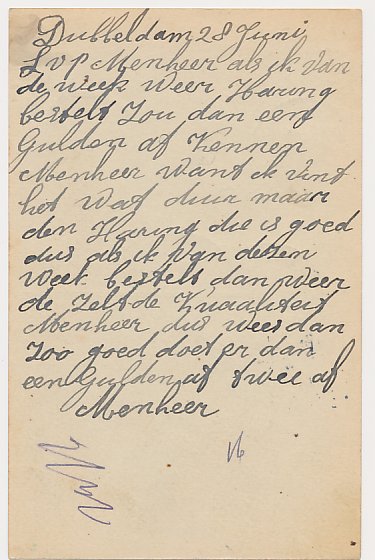 Dubbeldam 28 Juni
L v p Menheer als ik van
de week weer Haring
bestelt Zou dan een
Gulden af Kennen
Menheer want ik vint
het wat duur maar
den Haring die is goed
dus als ik van dezen
week bestelt dan weer
de Zelfde Kwaaliteit
Menheer dus wees dan
Zoo goed doet er dan
een Gulden af twee af
Menheer
16